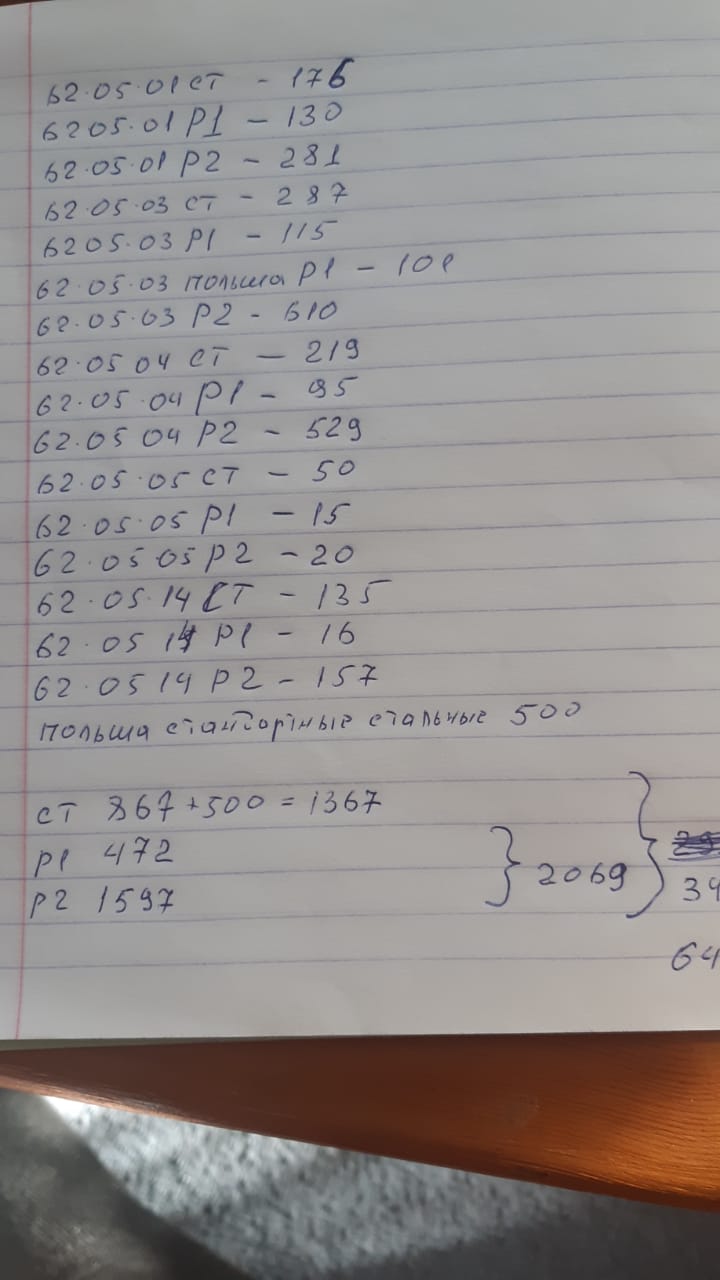 62.05.01 СТ - 176
6205.01 Р1 - 130
62.05.01 Р2 - 281
62.05.03 СТ - 287
6205.03 Р1 - 115
62.05.03 польша Р1 - 101
62.05.03 Р2 - 610
62.05 04 СТ - 219
62.05.04 Р1 - 95
62.05 04 Р2 - 529
62.05.05 СТ - 50
62.05.05 Р1 - 15
62.05 05 Р2 - 20
62.05.14 СТ - 135
62.05 14 Р1 - 16
62.05 14 Р2 - 157
польша стандартные стальные 500
СТ 867+500 = 1367
Р1 472
Р2 1597
} 2069 }
34
64